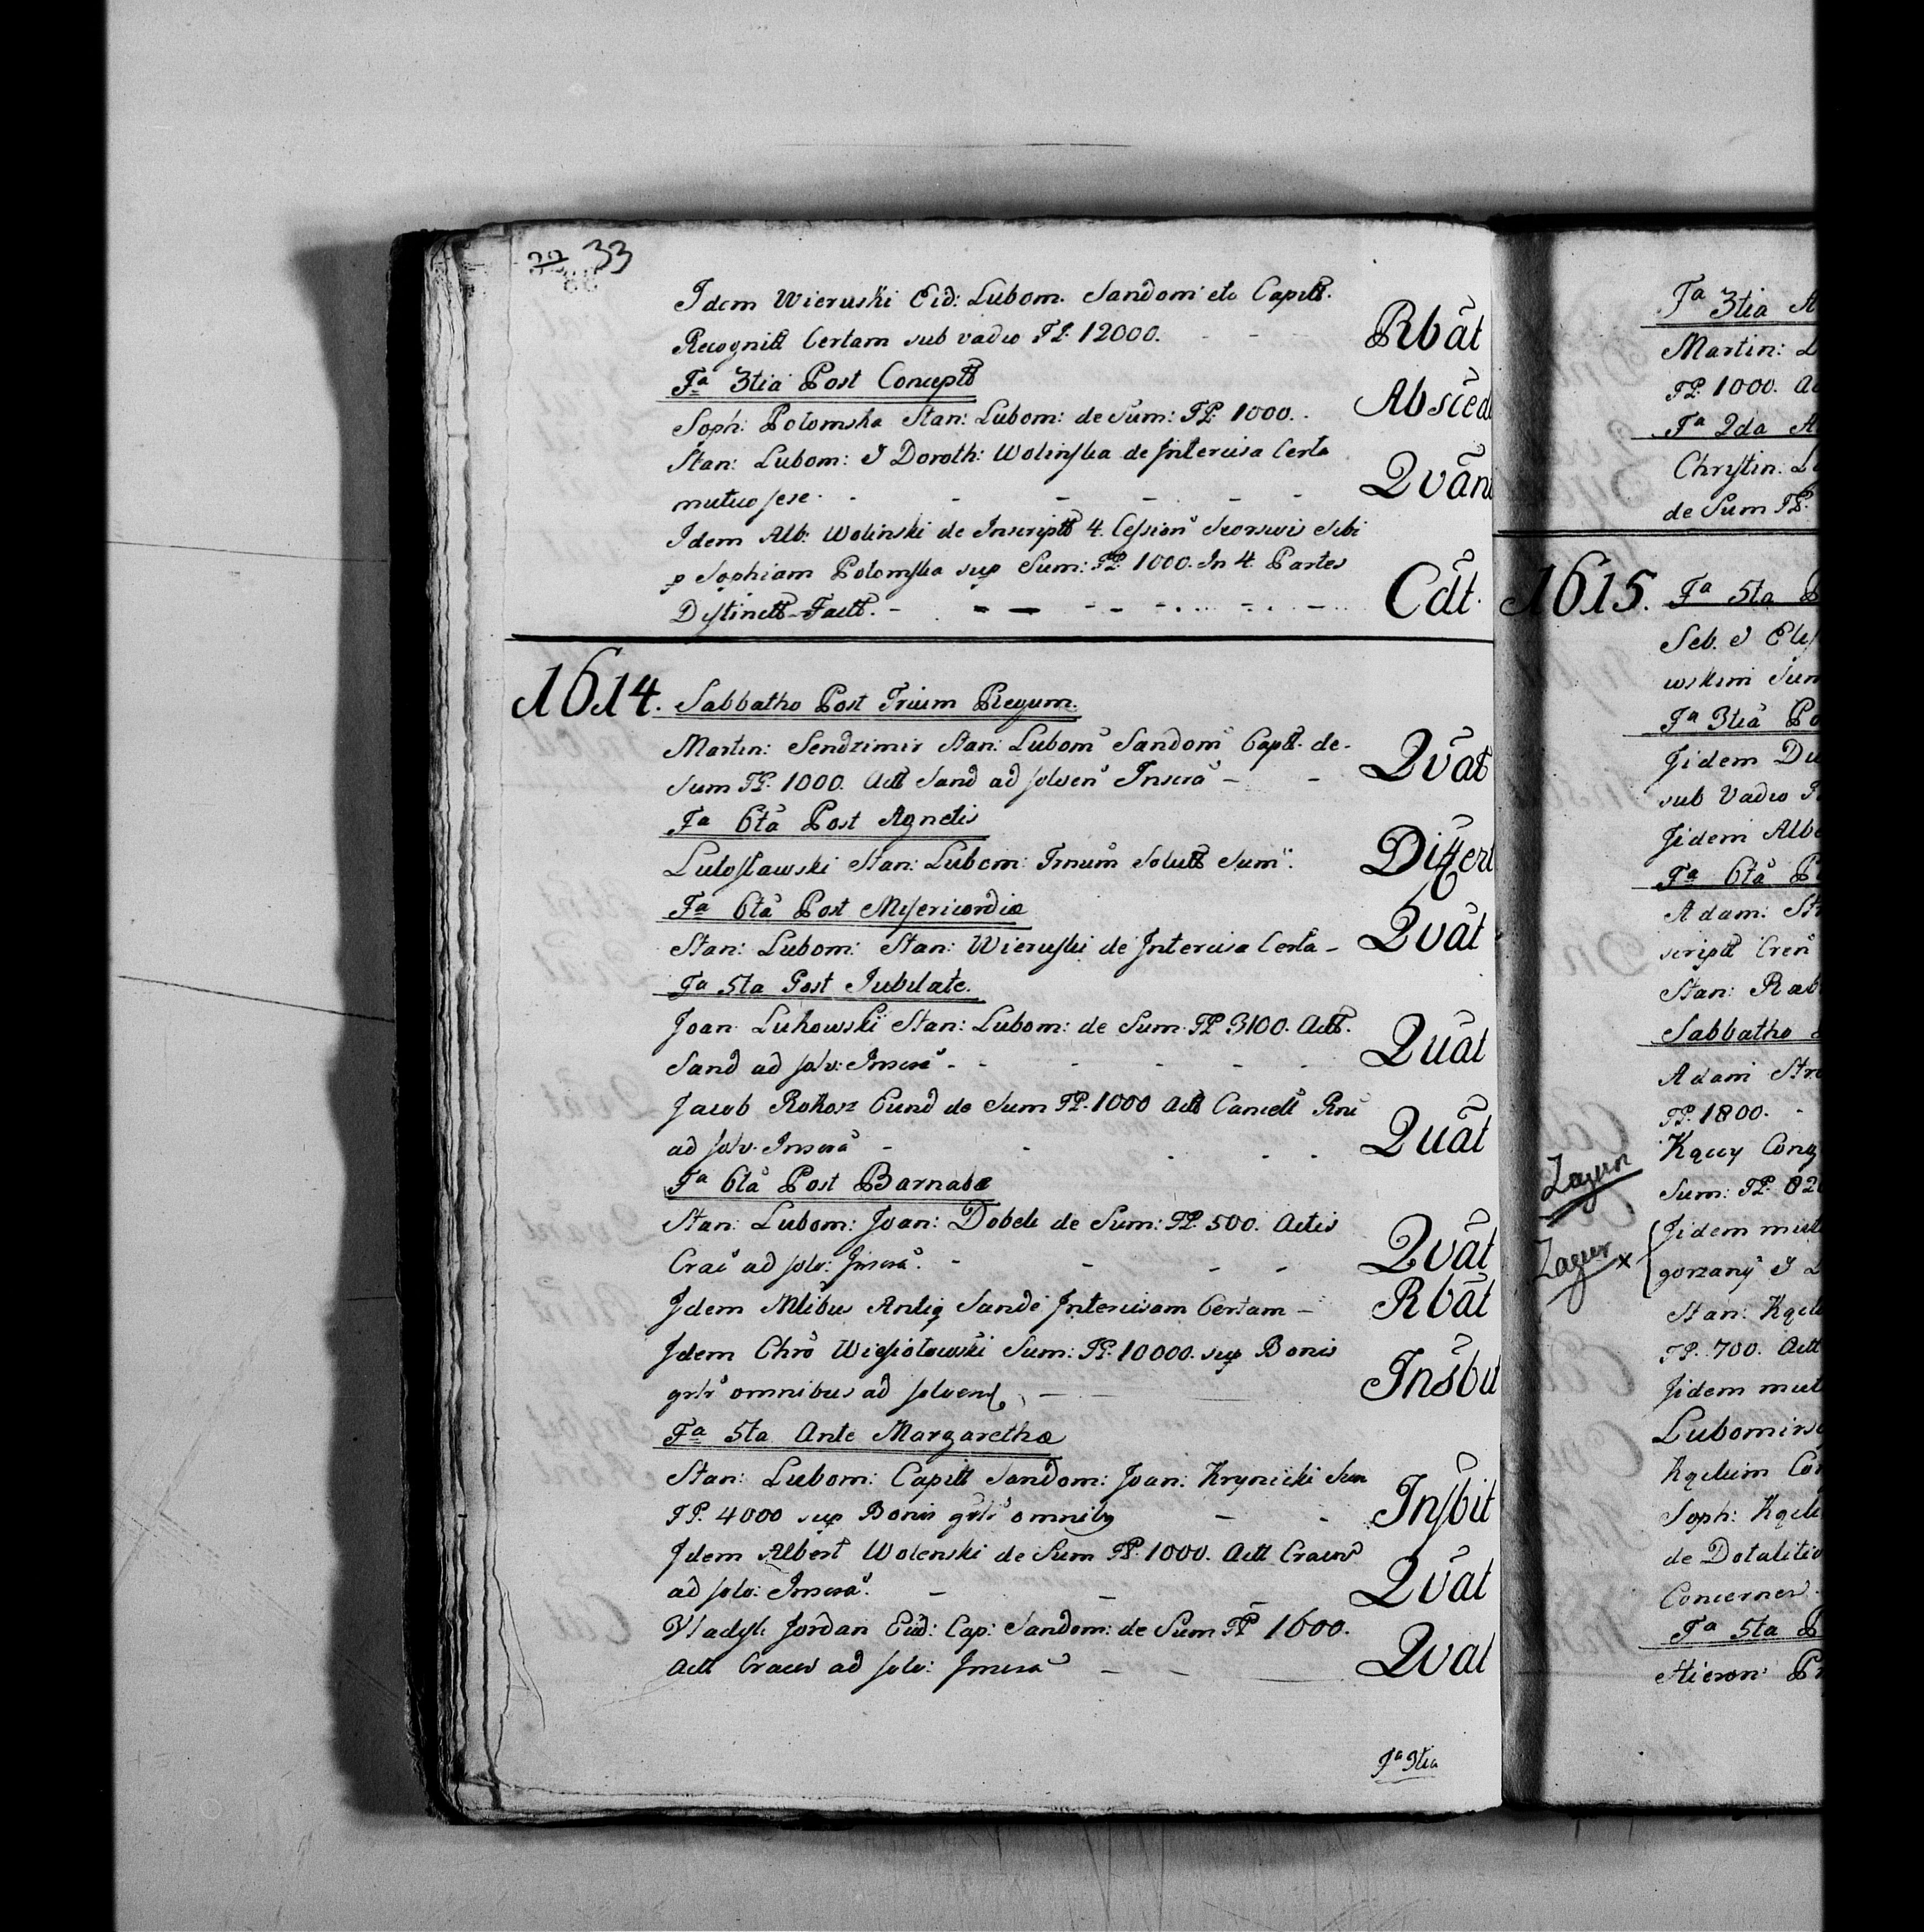 22 33
Idem Wieruski Eid: Lubom. Sandom etc Capitt.
Recognitt Certam sub vadio FP. 12000. - - Rbat
Fa 3tia Post Conceptt
Soph: Potomska Stan: Lubom: de Sum: FP. 1000. Absced
Stan: Lubom: & Doroth: Wolinska de Intercisa Certa
mutuo sese. - - - - - Qvant
Idem Alb: Wolinski de Inscriptt 4. Cession Seorsivis Sibi
p Sophiam Potomska sup Sum: FP. 1000. In 4 Partes
Distinctt Factt. - - - - Cdt.
1614. Sabbatho Post Trium Regum.
Martin: Sendzimir Stan: Lubom Sandom Captt. de
Sum FP. 1000. Actt Sand ad solven Insera - - Qvat
Fa 6ta Post Agnetis
Lutoslawski Stan: Lubom: Trnum Solutt Sum. Differt
Fa 6ta Post Misericordiæ
Stan: Lubom: Stan: Wieruski de Intercisa Certa - Qvat
Fa 5ta Post Jubilate.
Joan Lukowski Stan: Lubom: de Sum FP 3100. Actt.
Sand ad solv: Insera - - - - - Quat
Jacob Rokosz Eund de Sum FP. 1000 Actt Cancell Rni
ad solv. Insera - - - - - Quat
Fa 6ta Post Barnabæ
Stan: Lubom: Joan: Dobek de Sum: FP. 500. Actis
Crac ad solv: Insera. - - - - Qvat
Idem Mtibus Antiq Sande Intercisam Certam - Rbat
Idem Chro Wiesiołowski Sum: FP. 10000. sup Bonis
grlr omnibus ad solvend - Insbit
Fa 5ta Ante Margarethæ
Stan: Lubom: Capitt Sandom: Joan: Krynicki Sum
FP. 4000 sup Bonis grlr omnibq - - Insbit
Idem Albert Wolenski de Sum FP. 1000. Actt Cracov
ad solv: Insera. - - - Qvat
Vladysl: Jordan Eid: Cap: Sandom: de Sum FP 1600.
Actt Cracov ad solv: Insera - - Qvat
Fa 3tia
Fa 3tia A
Martin: L
FP. 1000. Ac
Fa 2da A
Christin. L
de Sum FP.
1615. Fa 5ta P
Seb. &
wskim Sum
Fa 3tia Po
Iidem Du
sub Vadio
Iidem Alb
Fa 6ta P
Adam: Str
scriptt Cren
Stan: Rab
Sabbatho
Adam Str
FP. 1800. -
Kącey Cong
Sum: FP. 82
Iidem mut
gorzany &
Stan: Kącki
FP. 700. Actt
Iidem mut
Lubomirs
Soph: Kącki
de Dotalitio
Concernen.
Fa 5ta P
Hieron: P